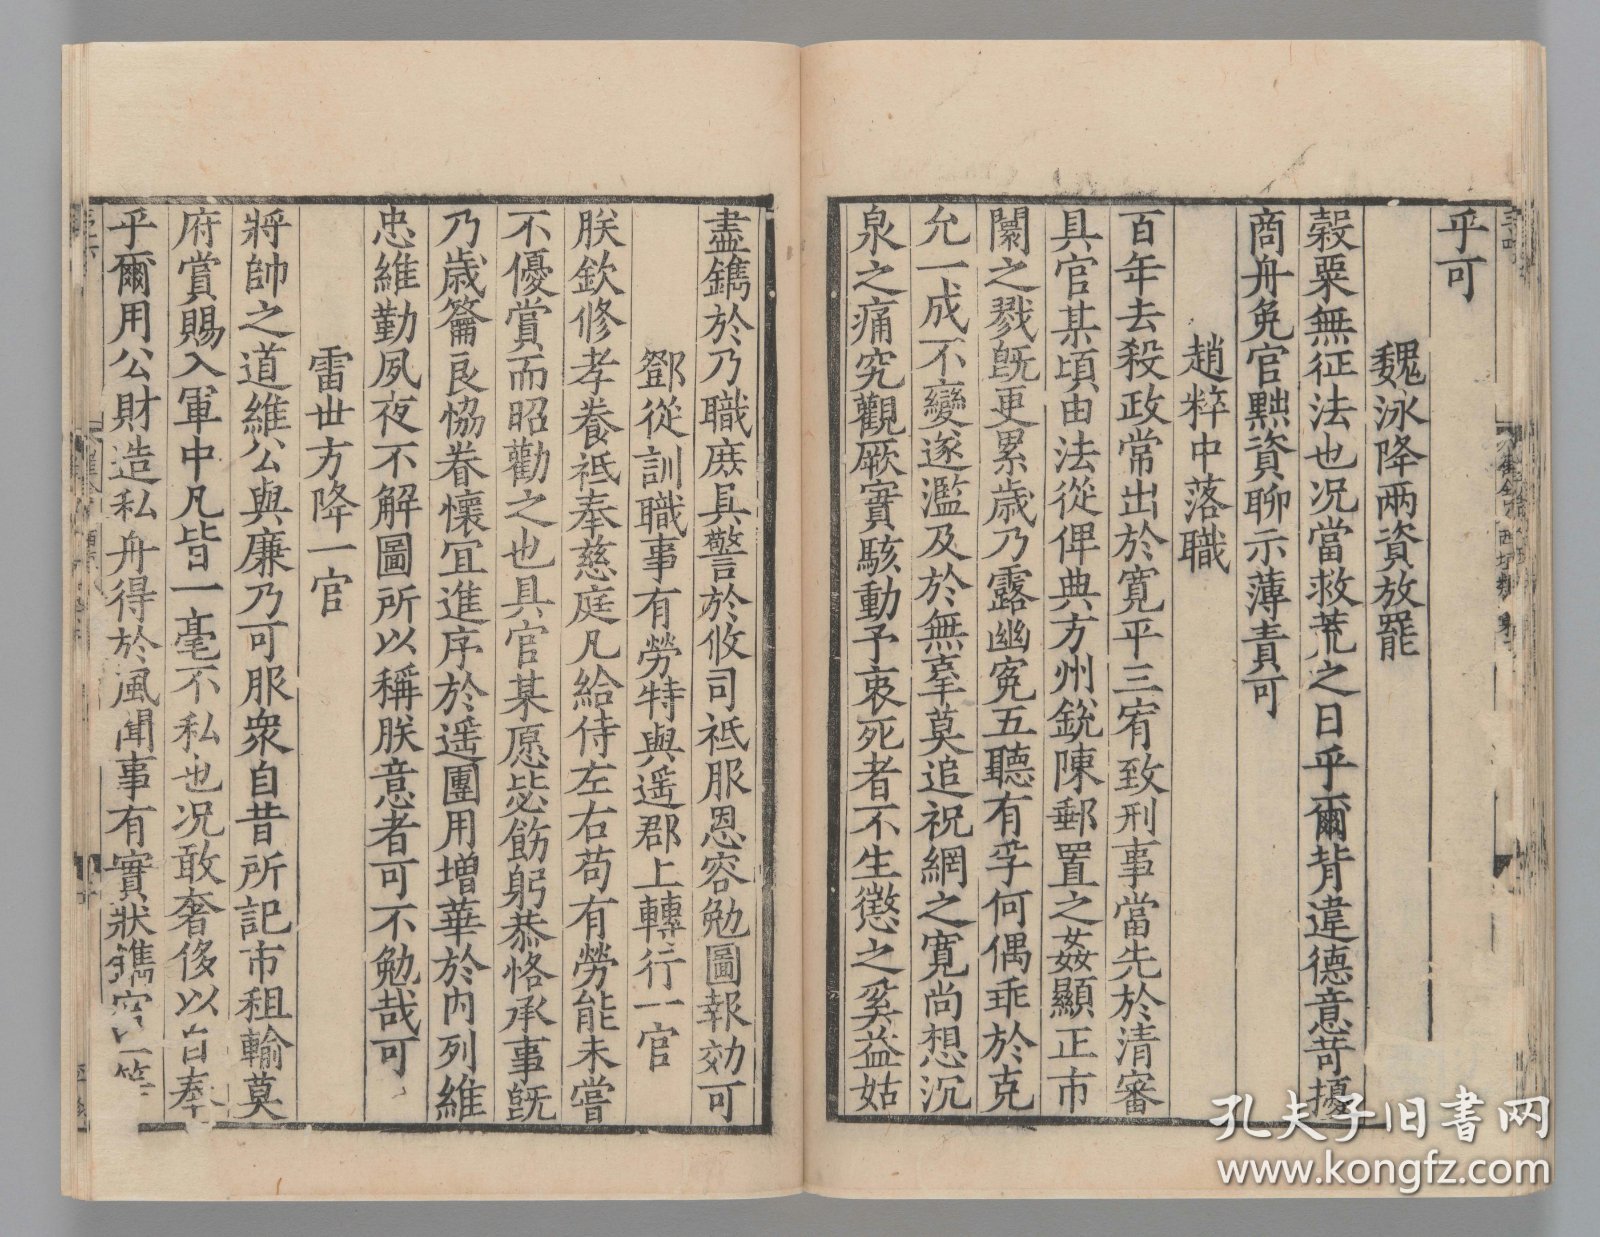 乎可
魏泳降兩資放罷
穀粟無征法也況當救荒之日乎爾背違德意苛擾
商舟免官黜資聊示薄責可
趙粹中落職
百年去殺政常出於寬平三宥致刑事當先於清審
具官某頃由法從俾典方州銳陳郵置之姦顯正市
闤之戮旣更累歲乃露幽寃五聽有孚何偶乖於克
允一成不變遂濫及於無辜莫追祝網之寬尚想沉
泉之痛究觀厥實駭動予衷死者不生懲之奚益姑
盡鐫於乃職庶具警於攸司祗服恩容勉圖報効可
鄧從訓職事有勞特與遥郡上轉行一官
朕欽修孝養祗奉慈庭凡給侍左右苟有勞能未嘗
不優賞而昭勸之也具官某愿毖飭躬恭恪承事旣
乃歲籥良協眷懷宜進序於遥團用增華於内列維
忠維勤夙夜不解圖所以稱朕意者可不勉哉可
雷世方降一官
將帥之道維公與廉乃可服衆自昔所記市租輸莫
府賞賜入軍中凡皆一毫不私也況敢奢侈以自奉
乎爾用公財造私舟得於風聞事有實狀鐫官一等
孔夫子旧书网
www.kongfz.com